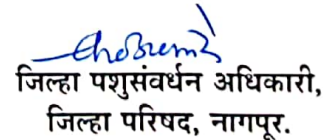 जिल्हा पशुसंवर्धन अधिकारी,
जिल्हा परिषद, नागपूर.